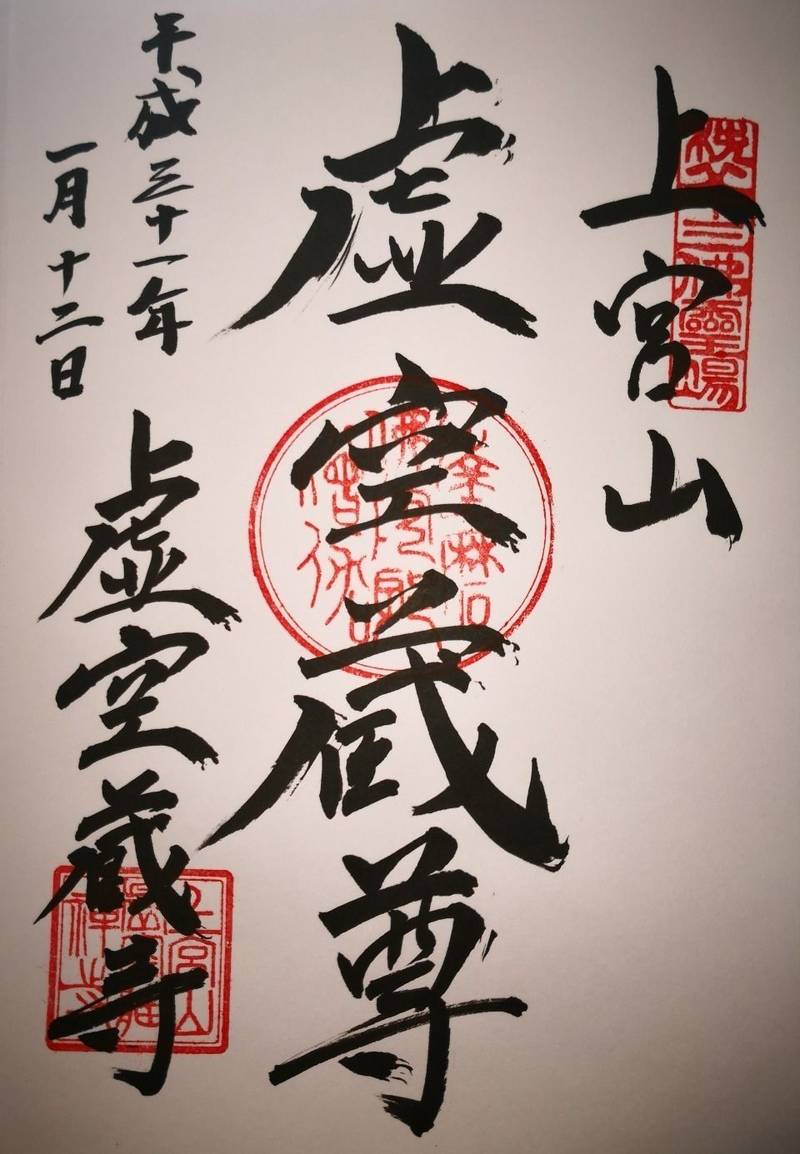 上宮山
虚空蔵尊
平成三十一年
一月十二日
虚空蔵寺